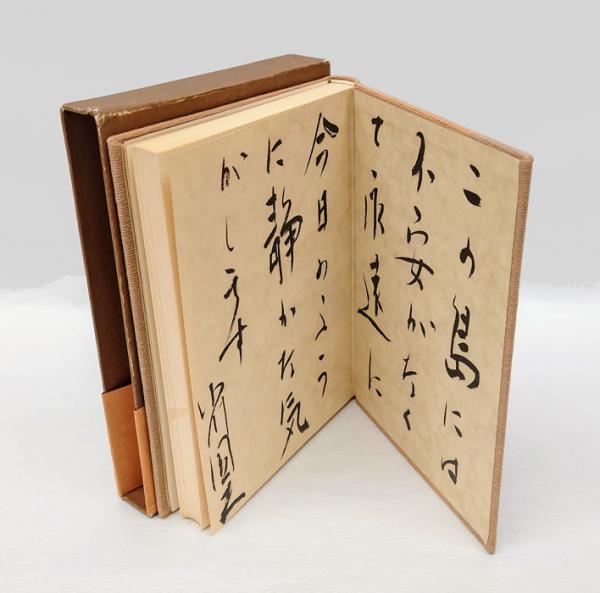 この島には
がなく
て永遠に
今日のよう
に静かな気
がします